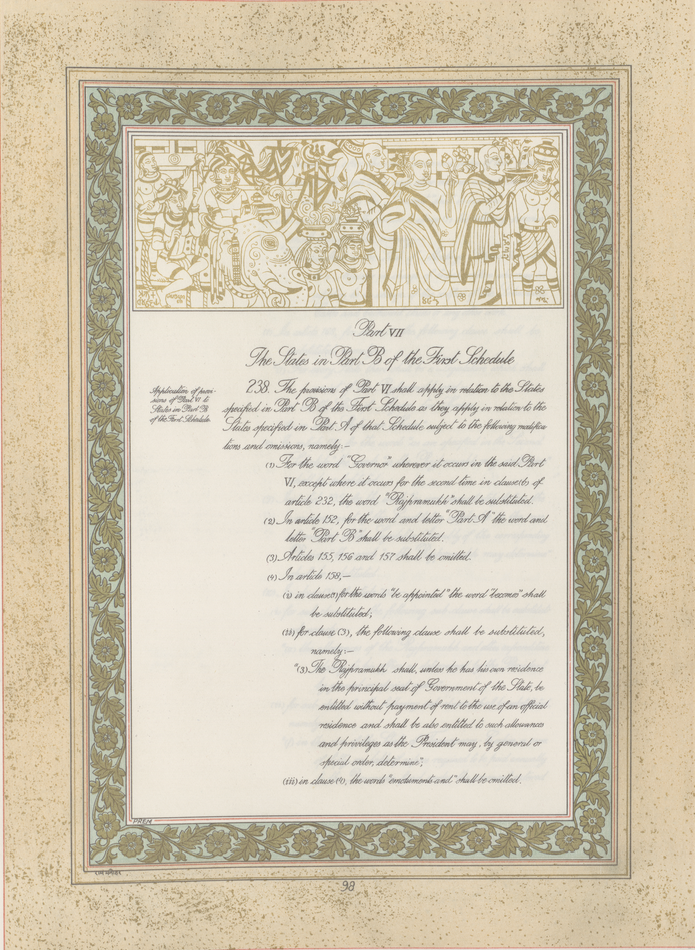 Part VII
The States in Part B of the First Schedule
Application of provi-
sions of Part VI to
States in Part B
of the First Schedule.
238. The provisions of Part VI shall apply in relation to the States
specified in Part B of the First Schedule as they apply in relation to the
States specified in Part A of that Schedule subject to the following modifica
tions and omissions, namely:—
(1) For the word "Governor" wherever it occurs in the said Part
VI, except where it occurs for the second time in clause (b) of
article 232, the word "Rajpramukh" shall be substituted.
(2) In article 152, for the word and letter "Part A" the word and
letter "Part B" shall be substituted.
(3) Articles 155, 156 and 157 shall be omitted.
(4) In article 158,—
(i) in clause (1) for the words "be appointed" the word "becomes" shall
be substituted;
(ii) for clause (3), the following clause shall be substituted,
namely:—
"(3) The Rajpramukh shall, unless he has his own residence
in the principal seat of Government of the State, be
entitled without payment of rent to the use of an official
residence and shall be also entitled to such allowances
and privileges as the President may, by general or
special order, determine";
(iii) in clause (4), the words "emoluments and" shall be omitted.
PREM
98